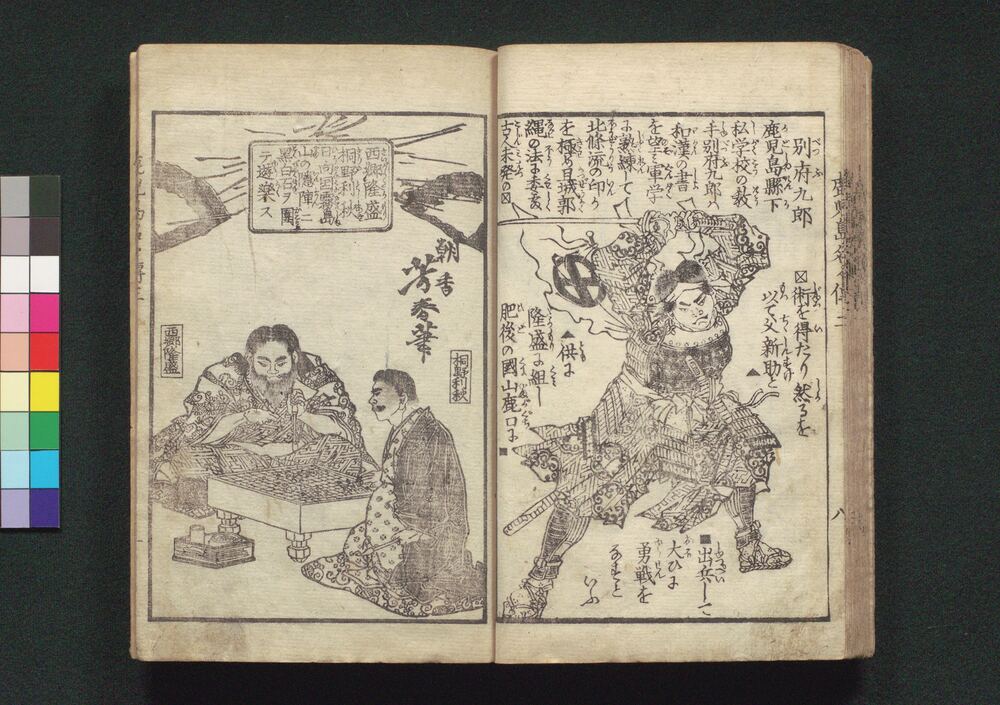 別府九郎
鹿児島縣下
私学校の教
手別府九郎ハ
和漢の書
を學ミ軍学
に熟練して
北條流の印か
を極め且城郭
縄の法は委敷
古人未発の☒
☒術を得たり然るを
以て父新助と▲
▲供に
隆盛に組し
肥後の國山鹿口に■
■出兵して
大ひに
勇戦を
なすと
いふ
八
西郷隆盛
桐野利秋
日向国霧島
山の隠陣ニ
黒白石ヲ圍
テ遊樂ス
朝香
芳春筆
桐野利秋
西郷隆盛